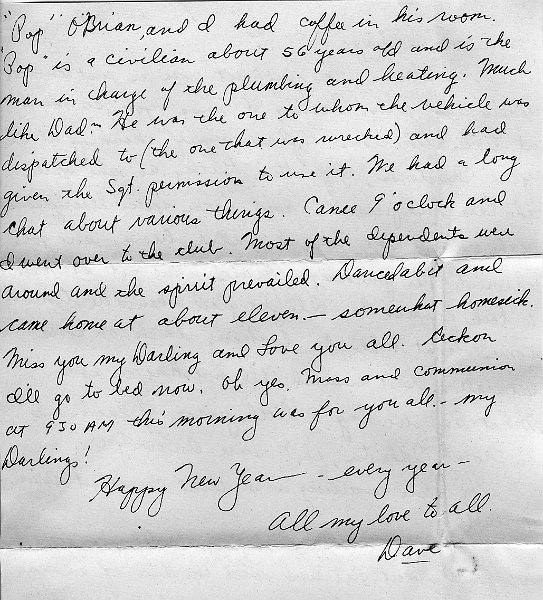 "Pop" O'Brian, and I had coffee in his room.
"Pop" is a civilian about 56 years old and is the
man in charge of the plumbing and heating. Much
like Dad - He was the one to whom the vehicle was
dispatched to (the one that was wrecked) and had
given the Sgt. permission to use it. We had a long
chat about various things. Came 9 o'clock and
I went over to the club. Most of the dependents were
around and the spirit prevailed. Danced a bit and
came home at about eleven. - somewhat homesick.
Miss you my Darling and Love you all. Reckon
I'll go to bed now. Oh yes. Mass and communion
at 930 AM this morning was for you all - my
Darlings!
Happy New Year - every year -
All my love to all.
Dave